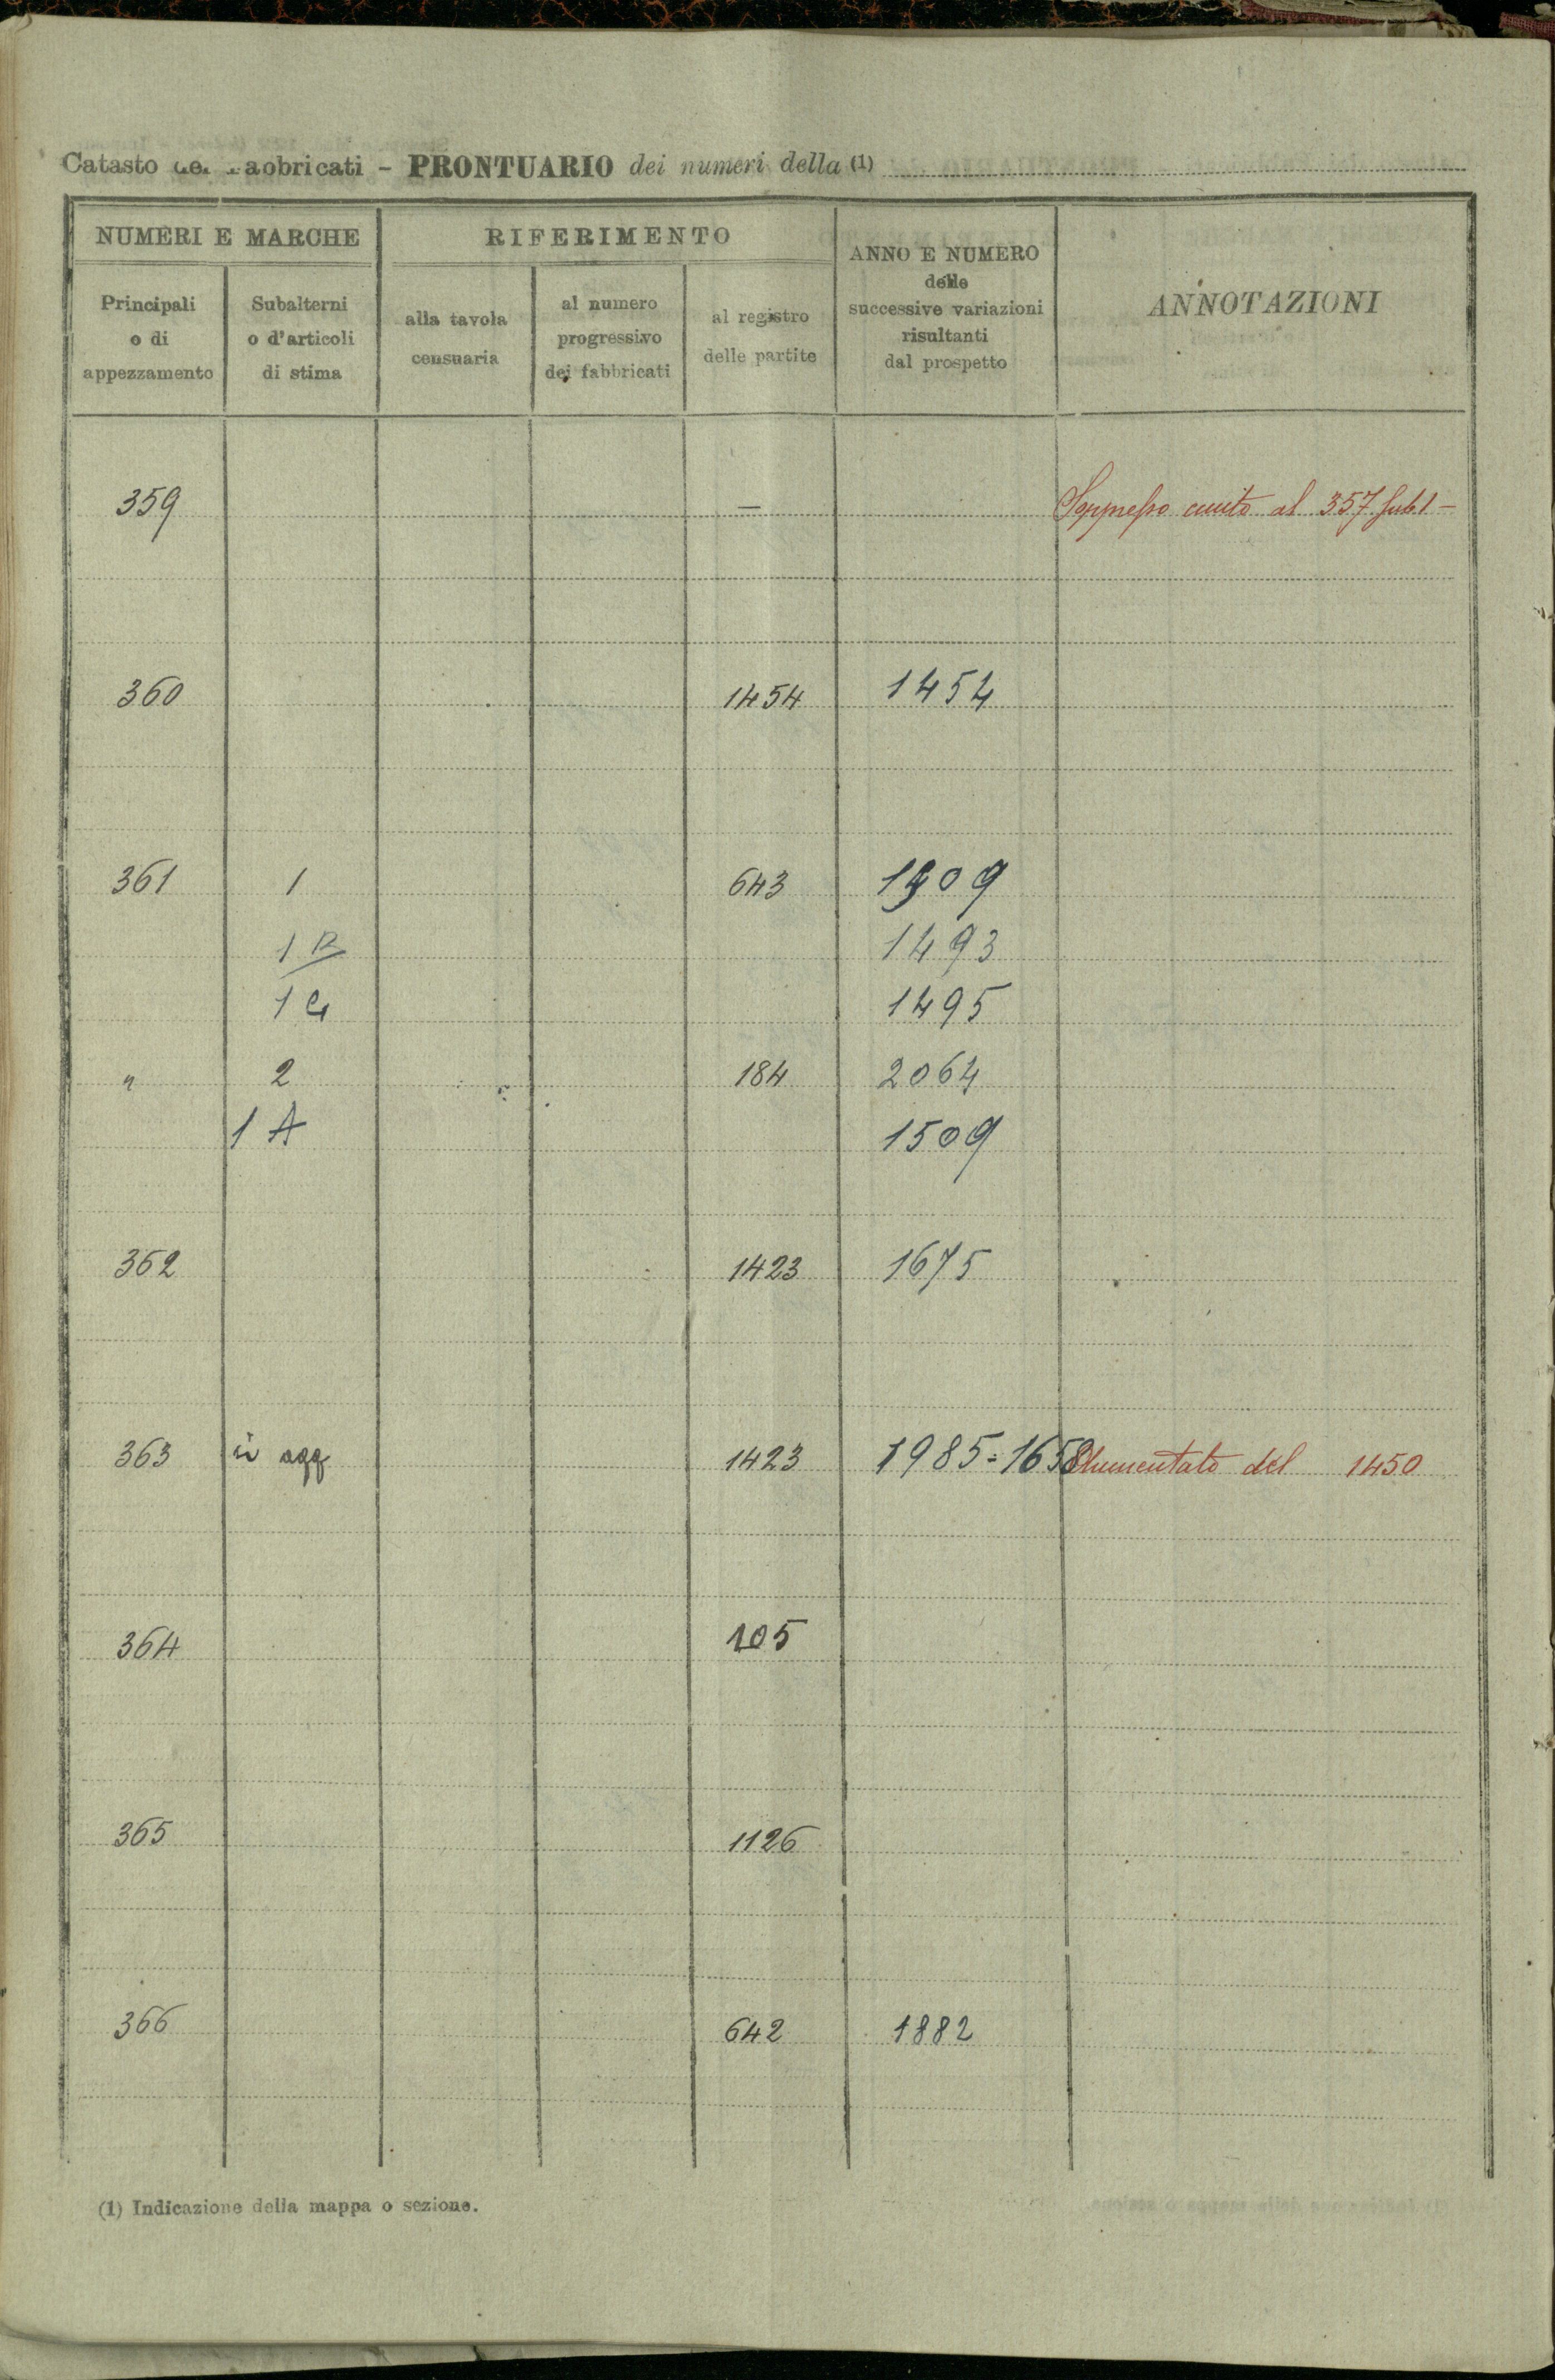 Catasto dei Fabbricati - PRONTUARIO dei numeri della (1)
NUMERI E MARCHE RIFERIMENTO ANNO E NUMERO delle successive variazioni risultanti dal prospetto ANNOTAZIONI
Principali o di appezzamento Subalterni o d'articoli di stima alla tavola censuaria al numero progressivo dei fabbricati al registro delle partite
359 — Soppresso unito al 357 sub 1 -
360 1454 1454
361 1 643 1909
1 B 1493
1 C 1495
" 2 184 2064
1 A 1509
362 1423 1675
363 in agg 1423 1985=1658 Aumentato del 1450
364 105
365 1126
366 642 1882
(1) Indicazione della mappa o sezione.